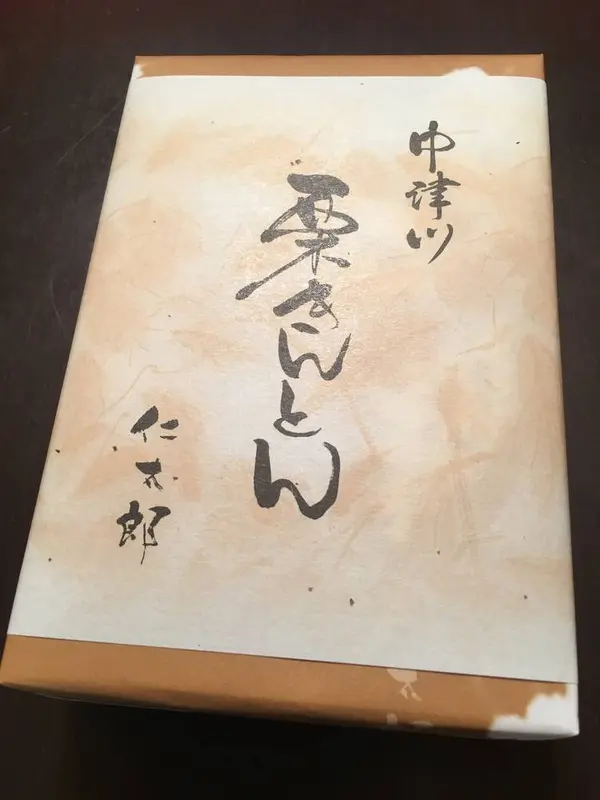 中津川
栗きんとん
仁太郎